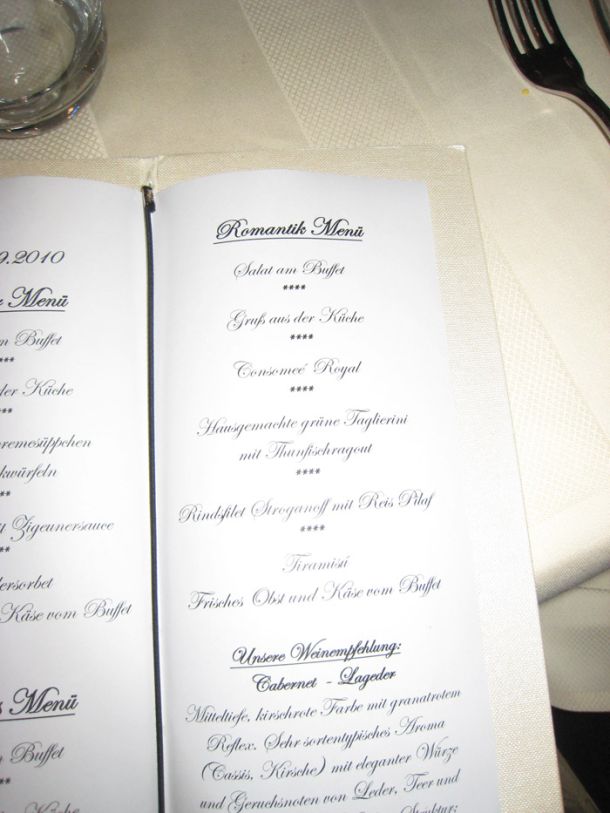 9.2010
Menü
Buffet
der Küche
remesüppchen
kwürfeln
Zigeunersauce
ersorbet
Käse vom Buffet
Menü
Buffet
Küche
Romantik Menü
Salat am Buffet
****
Gruß aus der Küche
****
Consomeé Royal
****
Hausgemachte grüne Taglierini
mit Thunfischragout
****
Rindsfilet Stroganoff mit Reis Pilaf
****
Tiramisú
Frisches Obst und Käse vom Buffet
Unsere Weinempfehlung:
Cabernet - Lageder
Mitteltiefe, kirschrote Farbe mit granatrotem
Reflex. Sehr sortentypisches Aroma
(Cassis, Kirsche) mit eleganter Würze
und Geruchsnoten von Leder, Teer und
Struktur;